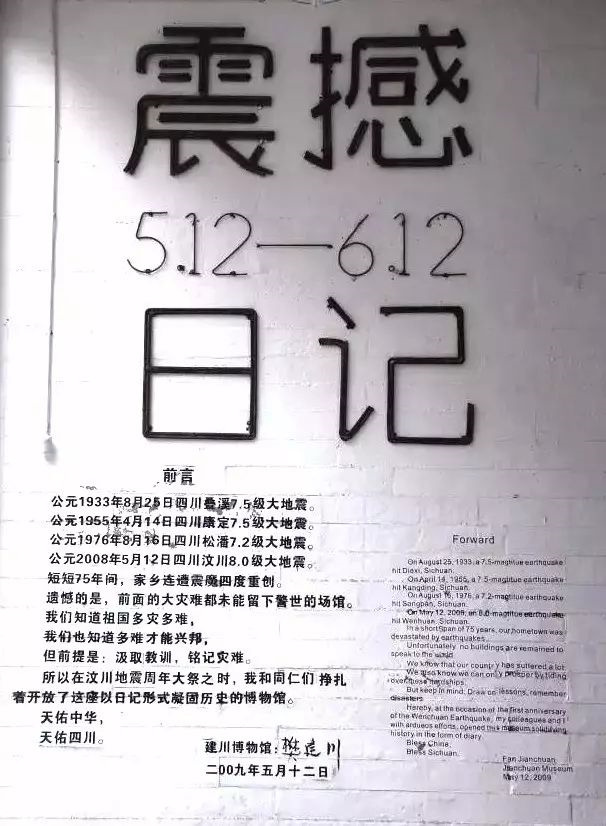 震撼
5.12—6.12
日记
前言
公元1933年8月25日四川叠溪7.5级大地震。
公元1955年4月14日四川康定7.5级大地震。
公元1976年8月16日四川松潘7.2级大地震。
公元2008年5月12日四川汶川8.0级大地震。
短短75年间，家乡连遭震魔四度重创。
遗憾的是，前面的大灾难都未能留下警世的场馆。
我们知道祖国多灾多难，
我们也知道多难才能兴邦，
但前提是：汲取教训，铭记灾难。
所以在汶川地震周年大祭之时，我和同仁们 挣扎
着开放了这座以日记形式凝固历史的博物馆。
天佑中华，
天佑四川。
建川博物馆：樊建川
二00九年五月十二日
Forward
On August 25, 1933, a 7.5-magtitue earthquake
hit Diexi, Sichuan.
On April 14, 1955, a 7.5-magtitue earthquake
hit Kangding, Sichuan.
On August 16, 1976, a 7.2-magtitue earthquake
hit Songpan, Sichuan.
On May 12, 2008, an 8.0-magtitue earthquake
hit Wenhuan, Sichuan.
In a short span of 75 years, our hometown was
devastated by earthquakes.
Unfortunately, no buildings are remained to
speak to the world.
We know that our country has suffered a lot.
We also know we can only prosper by tiding
over these hardships.
But keep in mind: Draw on lessons, remember
disasters.
Hereby, at the occasion of the first anniversary
of the Wenchuan Earthquake, my colleagues and I
with ardueos efforts, opened this museum solidifying
history in the form of diary.
Bless China,
Bless Sichuan.
Fan Jianchuan
Jianchuan Museum
May 12, 2009